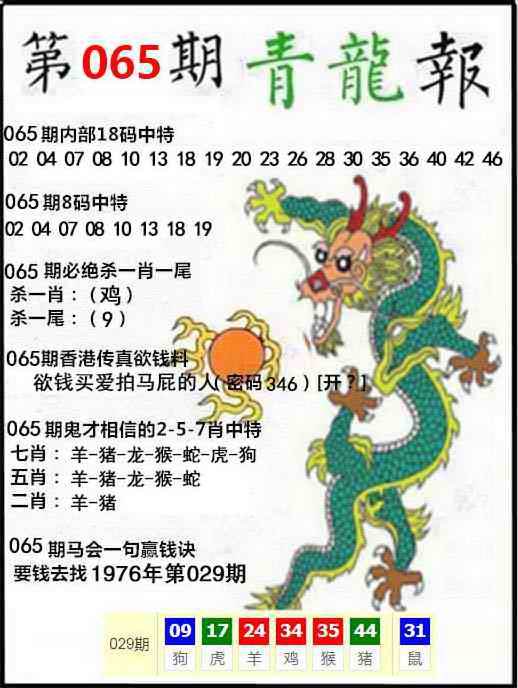 第065期青龍報
065期内部18码中特
02 04 07 08 10 13 18 19 20 23 26 28 30 35 36 40 42 46
065期8码中特
02 04 07 08 10 13 18 19
065 期必绝杀一肖一尾
杀一肖：（鸡）
杀一尾：（9）
065期香港传真欲钱料
欲钱买爱拍马屁的人（密码346）[开？]
065期鬼才相信的2-5-7肖中特
七肖：羊-猪-龙-猴-蛇-虎-狗
五肖：羊-猪-龙-猴-蛇
二肖：羊-猪
065期马会一句赢钱诀
要钱去找1976年第029期
029期 09 17 24 34 35 44 31
狗 虎 羊 鸡 猴 猪 鼠